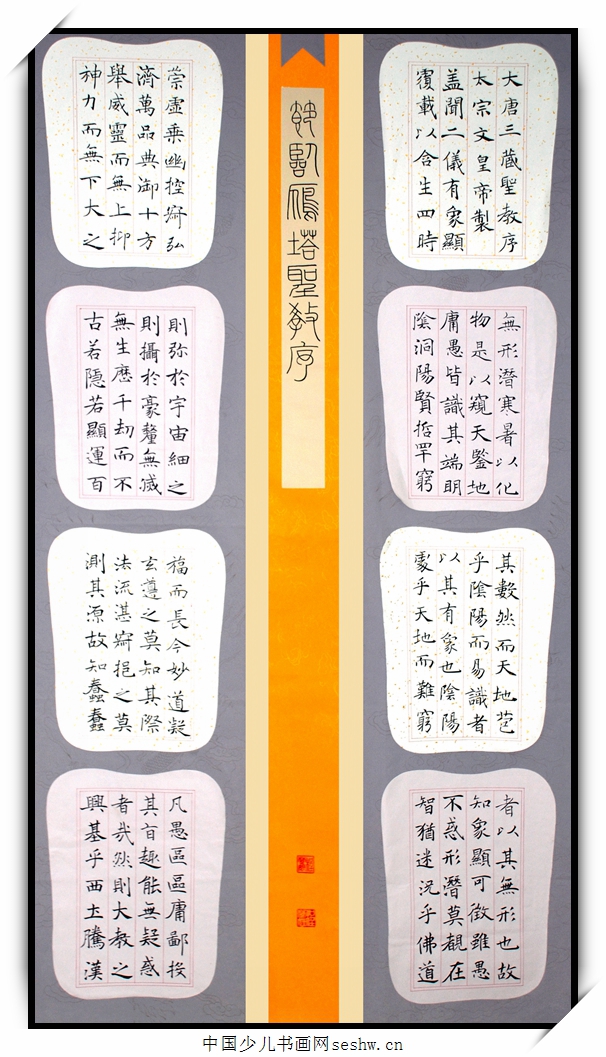 大唐三藏聖教序
太宗文皇帝製
盖聞二儀有象顯
覆載以含生四時
無形潛寒暑以化
物是以窺天鑒地
庸愚皆識其端明
陰洞陽賢哲罕窮
其數然而天地苞
乎陰陽而易識者
以其有象也陰陽
處乎天地而難窮
者以其無形也故
知象顯可徵雖愚
不惑形潛莫覩在
智猶迷況乎佛道
節臨鴈塔聖教序
崇虛乘幽控寂弘
濟萬品典御十方
舉威靈而無上抑
神力而無下大之
則弥於宇宙細之
則攝於豪釐無滅
無生歷千劫而不
古若隱若顯運百
福而長今妙道凝
玄遵之莫知其際
法流湛寂挹之莫
測其源故知蠢蠢
凡愚區區庸鄙投
其旨趣能無疑惑
者哉然則大教之
興基乎西土騰漢
中国少儿书画网seshw.cn